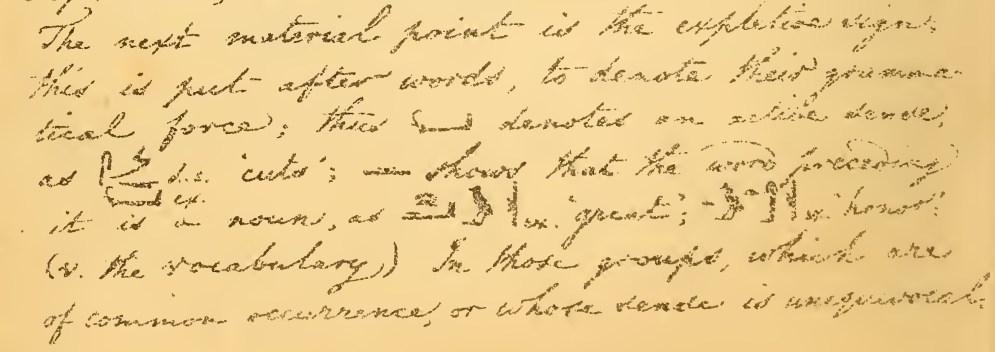 The next material point is the expletive sign:
this is put after words, to denote their gramma-
tical force; thus denotes an active sense,
as s.e. 'cuts'; shows that the word preceding
it is a noun, as ex. 'great'; ex. 'honor'.
(v. the vocabulary) In those groups, which are
of common occurrence, or whose sense is unequivocal